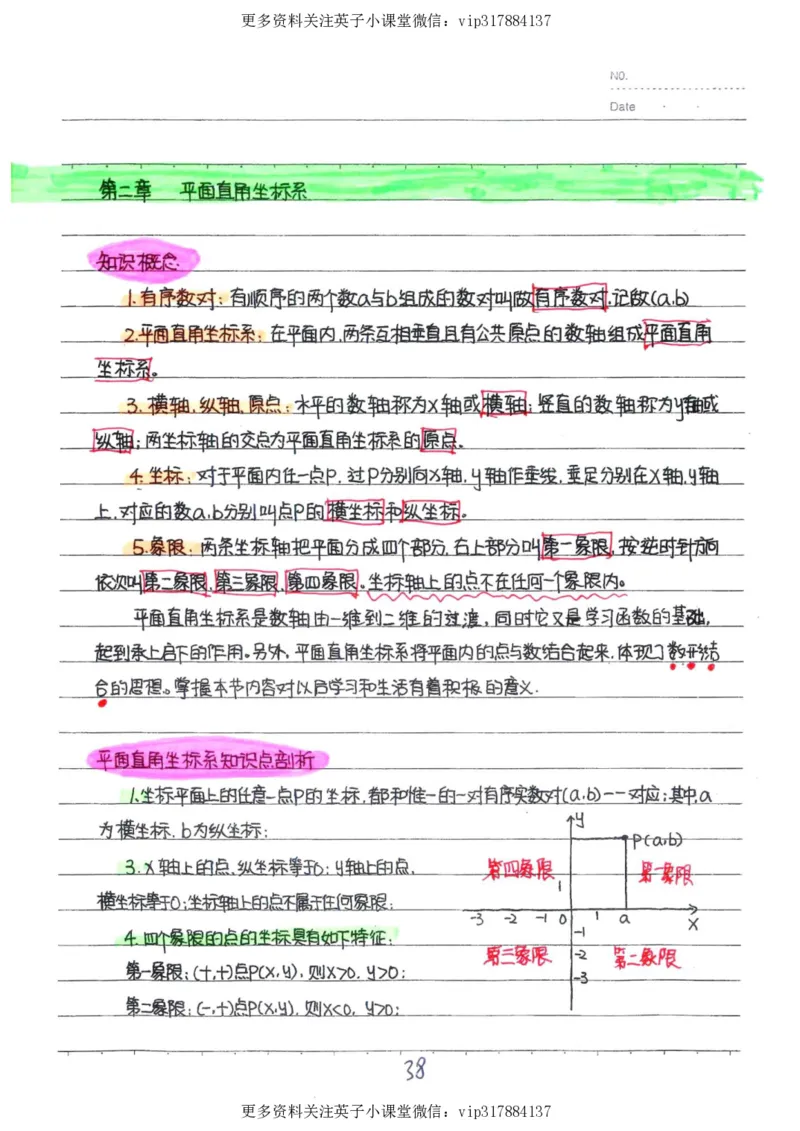 更多资料关注英子小课堂微信：vip317884137
NO.
Date
第二章 平面直角坐标系
知识概念
1.有序数对：有顺序的两个数a与b组成的数对叫做有序数对.记做(a.b)
2.平面直角坐标系：在平面内,两条互相垂直且有公共原点的数轴组成平面直角
坐标系。
3.横轴,纵轴,原点：水平的数轴称为x轴或横轴；竖直的数轴称为y轴或
纵轴；两坐标轴的交点为平面直角坐标系的原点。
4.坐标：对于平面内任一点P,过P分别向x轴,y轴作垂线,垂足分别在x轴,y轴
上,对应的数a,b分别叫点P的横坐标和纵坐标。
5.象限：两条坐标轴把平面分成四个部分,右上部分叫第一象限,按逆时针方向
依次叫第二象限,第三象限,第四象限。坐标轴上的点不在任何一个象限内。
平面直角坐标系是数轴由一维到二维的过渡,同时它又是学习函数的基础,
起到承上启下的作用。另外,平面直角坐标系将平面内的点与数结合起来,体现了数形结
合的思想。掌握本节内容对以后学习和生活有着积极的意义.
平面直角坐标系知识点剖析
1.坐标平面上的任意一点P的坐标,都和惟一的一对有序实数对(a.b)一一对应；其中,a
为横坐标,b为纵坐标；
y
P(a,b)
3.x轴上的点,纵坐标等于0；y轴上的点,
第四象限 第一象限
1
横坐标等于0；坐标轴上的点不属于任何象限；
-3 -2 -1 0 1 a x
4.四个象限的点的坐标具有如下特征；
-1
第三象限 -2 第二象限
第一象限；(+,+)点P(x,y),则x>0,y>0；
-3
第二象限；(-,+)点P(x,y),则x<0,y>0；
38
更多资料关注英子小课堂微信：vip317884137